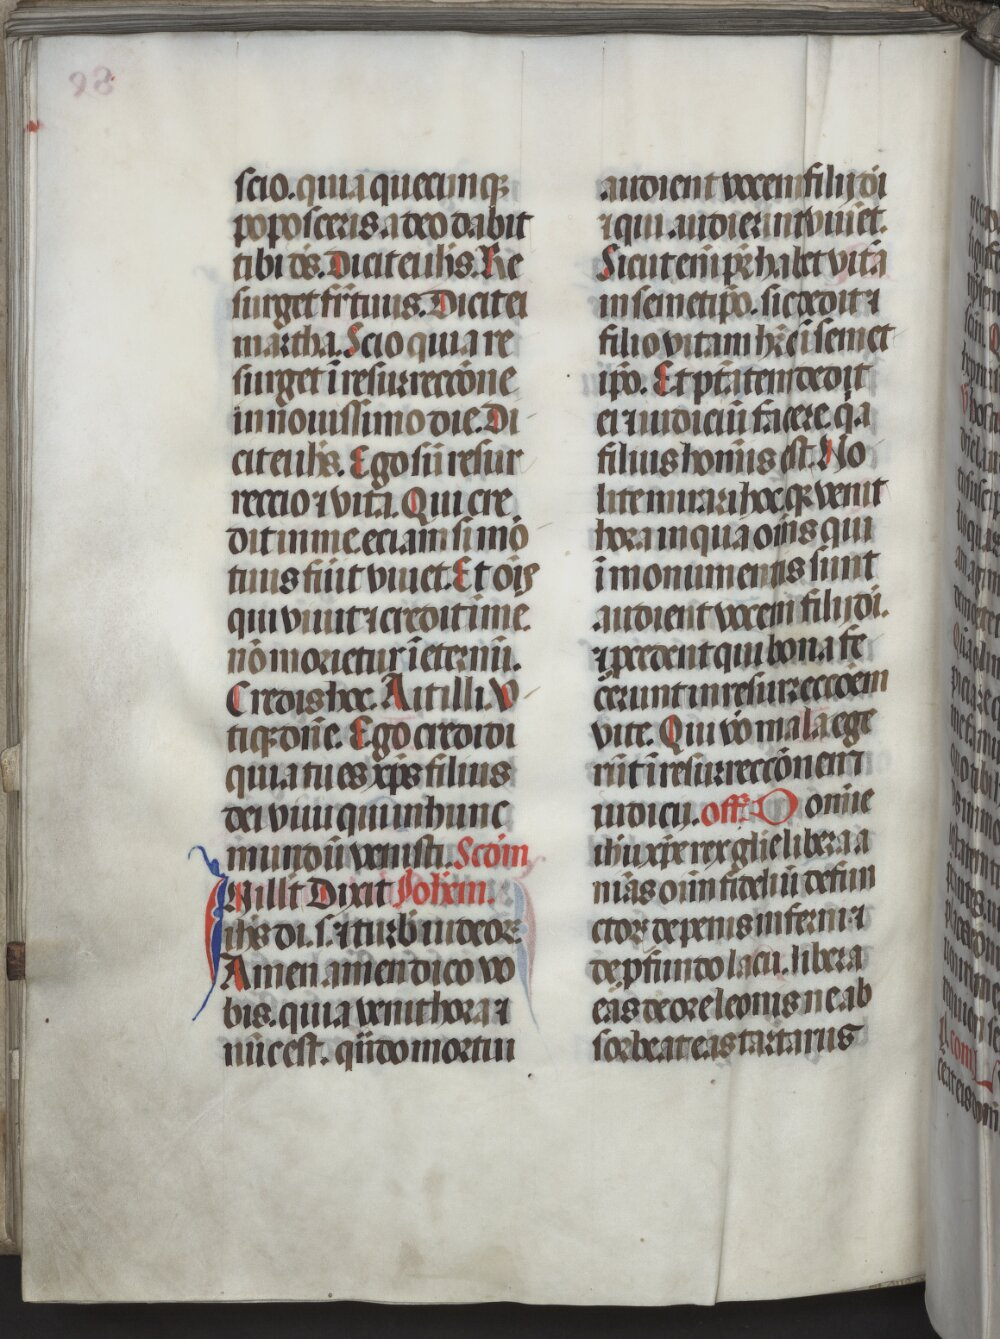 scio. quia quecunq̃
poposceris a deo dabit
tibi ds̃. Dicit ei ih̃s. Re
surget fr̃ tuus. Dicit ei
martha. Scio quia re
surget ĩ resurreccõne
in nouissimo die. Di
cit ei ih̃s. Ego sũ resur
reccio ⁊ vita. Qui cre
dit in me. eciam si mõ
tuus fũit viuet. Et oĩs
qui viuit ⁊ credit ĩ me.
nõ morietur ĩ eternũ.
Credis hec. Ait illi. V
tiq̃ dñe. Ego credidi
quia tu es xp̃s filius
dei viui qui in hunc
mundũ venisti. Scdm̃
In ill̃ t̃ Dixit Joh̃em.
ih̃s di. s. ⁊ turb̃ iudeor̃
Amen amen dico vo
bis. quia venit hora ⁊
nũc est. qñdo mortui
audient vocem filij dĩ
⁊ qui audierint viuẽt.
Sicut em̃ pr̃ habet vitã
in semetip̃o. sic dedit ⁊
filio vitam hr̃e ĩ semet
ip̃o. Et pt̃atem dedit
ei iudiciũ facere. q̃a
filius homĩs est. No
lite mirari hoc. q̃ venit
hora in qua om̃s qui
ĩ monumentis sunt
audient vocem filij dĩ.
⁊ p̃cedent qui bona fe
cerunt in resurreccõem
vite. Qui võ mala ege
rũt ĩ resurreccõnem
iudicij. off̃. Domine
ih̃u xp̃e rex gl̃ie libera a
nĩas om̃ fideliũ defun
ctor̃ de penis inferni ⁊
de p̃fundo lacu. libera
eas de ore leonis ne ab
sorbeat eas tartarus